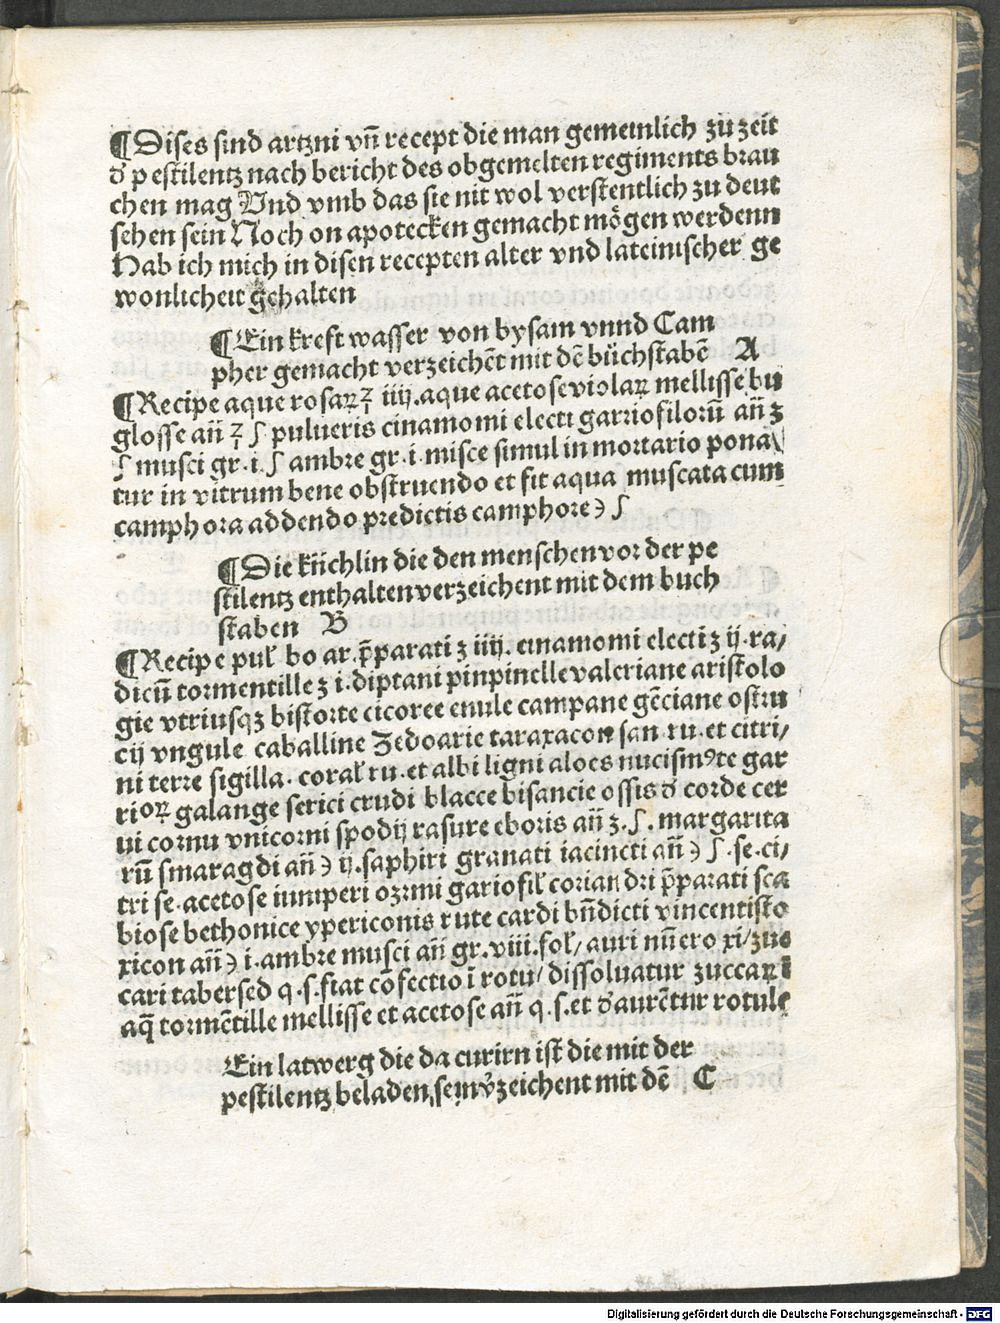 ¶Dises sind artzni vn̄ recept die man gemeinlich zu zeit
d' pestilentz nach bericht des obgemelten regiments brau
chen mag Vnd vmb das sie nit wol verstentlich zu deut
schen sein Noch on apotecken gemacht mögen werdenn
Hab ich mich in disen recepten alter vnd lateinischer ge
wonlicheit gehalten
¶Ein kreft wasser von bysam vnnd Cam
pher gemacht verzeichēt mit dē büchstabē A
¶Recipe aque rosaꝝ ℥ iiij. aque acetose violaꝝ mellisse bu
glosse an̄ ℥ ʃ pulueris cinamomi electi garriofiloru̅ an̄ ʒ
ʃ musci gr. i. ʃ ambre gr. i. misce simul in mortario pona
tur in vitrum bene obstruendo et fit aqua muscata cum
camphora addendo predictis camphore ϶ ʃ
¶Die küchlin die den menschen vor der pe
stilentz enthalten verzeichent mit dem buch
staben B
¶Recipe pul' bo ar. p̄parati ʒ iiij. cinamomi electi ʒ ij. ra/
dicu̅ tormentille ʒ i. diptani pinpinelle valeriane aristolo
gie vtriusqꝫ bistorte cicoree enule campane gēciane ostru
cij vngule caballine Zedoarie taraxacon san. ru. et citri/
ni terre sigilla. coral' ru. et albi ligni aloes nucismꝰte gar
rioꝝ galange serici crudi blacce bisancie ossis d' corde cer
ui cornu vnicorni spodij rasure eboris an̄ ʒ. ʃ. margarita
ru̅ smaragdi an̄ ϶ ij. saphiri granati iacincti an̄ ϶ ʃ. se. ci/
tri se. acetose iuniperi ozimi gariofil' coriandri p̄parati sca
biose bethonice ypericonis rute cardi bn̄dicti vincentisto
xicon an̄ ϶ i. ambre musci an̄ gr. viii. fol'/ auri nu̅ero xi/ zuc
cari tabersed q. s. fiat co̅fectio ī rotu/ dissoluatur zuccaꝝ ī
aq̄ tormētille mellisse et acetose an̄ q. s. et d'aurētur rotule
Ein latwerg die da curirn ist die mit der
pestilentz beladen sein v'zeichent mit dē C
Digitalisierung gefördert durch die Deutsche Forschungsgemeinschaft - DFG